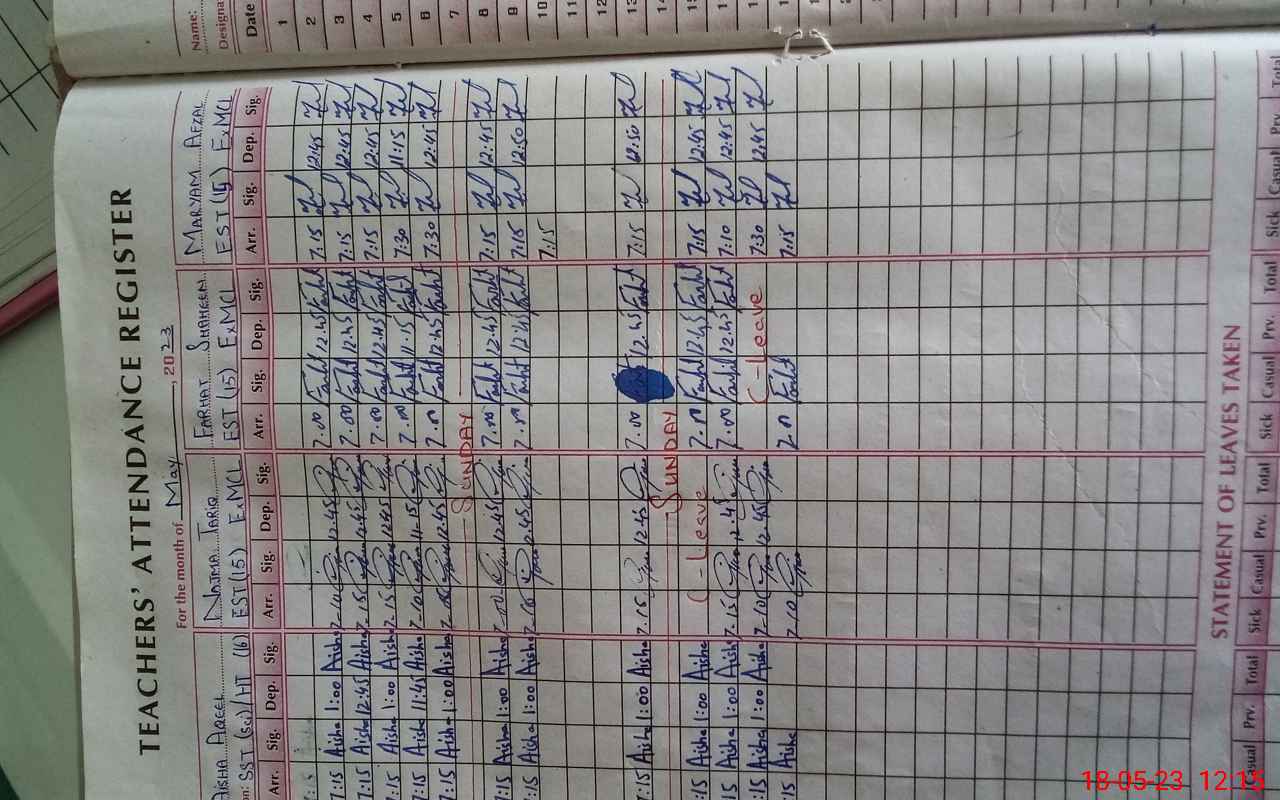 TEACHERS' ATTENDANCE REGISTER
For the month of May, 2023
AISHA AQEEL NAJMA TARIQ FARHAT SHAHEEN MARYAM AFZAL Name:
on: SST (Sci)/HT (16) EST(15) ExMCL EST (15) ExMCL EST (15) ExMCL Designa
Arr. Sig. Dep. Sig. Arr. Sig. Dep. Sig. Arr. Sig. Dep. Sig. Arr. Sig. Dep. Sig. Date
1
7:15 Aisha 1:00 Aisha 7.10 12.45 7.00 Farht 12.45 Farht 7:15 12:45 2
7:15 Aisha 12:45 Aisha 7.15 12.45 7.00 Farht 12.45 Farht 7:15 12:45 3
:15 Aisha 1:00 Aisha 7.15 12.45 7.00 Farht 12.45 Farht 7:15 12:45 4
:15 Aisha 11:45 Aisha 7.10 11.15 7.00 Farht 11.15 Farht 7:30 11:15 5
:15 Aisha 1:00 Aisha 12.45 7.00 Farht 12.45 Farht 7:30 12:45 6
SUNDAY 7
:15 Aisha 1:00 Aisha 12.45 7.00 Farht 12.45 Farht 7:15 12:45 8
:15 Aisha 1:00 Aisha 12.45 7.00 Farht 12.45 Farht 7:15 12:50 9
7:15 10
11
12
:15 Aisha 1:00 Aisha 7.15 12.45 7.00 12.45 Farht 7:15 12:50 13
SUNDAY 14
:15 Aisha 1:00 Aisha C-Leave 7.00 Farht 12.45 Farht 7:15 12:45
:15 Aisha 1:00 Aisha 7.15 12.45 7.00 Farht 12.45 Farht 7:10 12:45
:15 Aisha 1:00 Aisha 7.10 12.45 C-Leave 7:30 12:45
:15 Aisha 7.10 7.00 Farht 7:15
STATEMENT OF LEAVES TAKEN
Casual Prv. Total Sick Casual Prv. Total Sick Casual Prv. Total Sick Casual Prv. Total
18-05-23 12:15